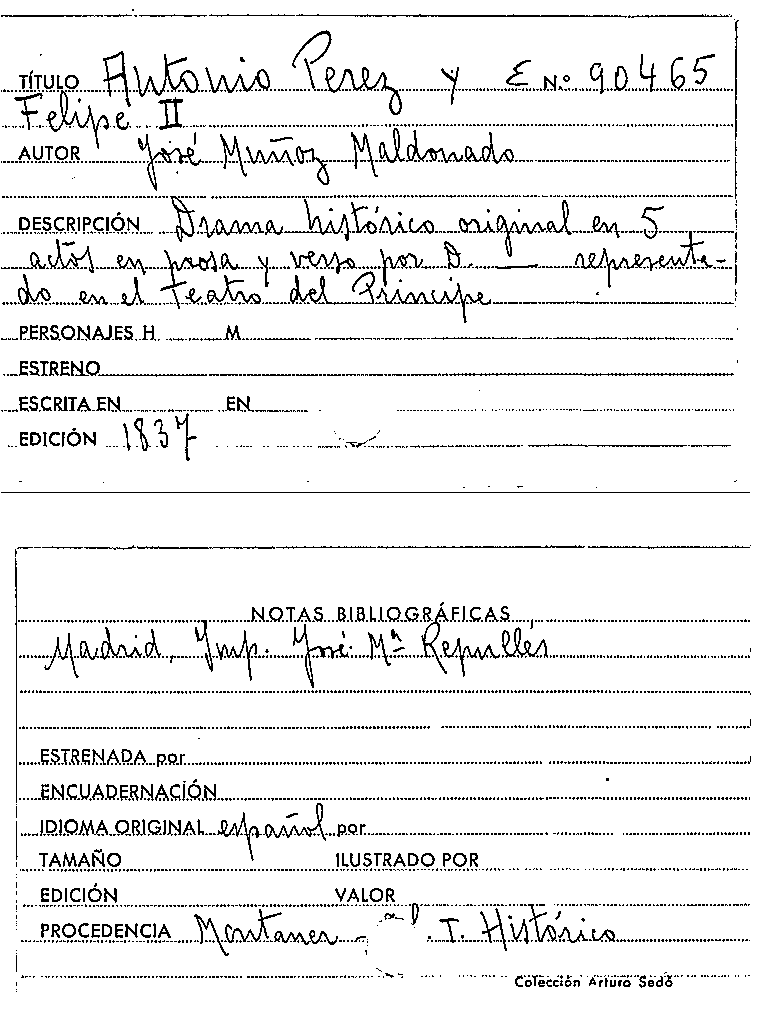 TÍTULO Antonio Perez y E N.º 90465
Felipe II
AUTOR José Muñoz Maldonado
DESCRIPCIÓN Drama histórico original en 5
actos en prosa y verso por D. __ representa-
do en el Teatro del Principe
PERSONAJES H M
ESTRENO
ESCRITA EN EN
EDICIÓN 1837
NOTAS BIBLIOGRÁFICAS
Madrid, Ymp. José Mª Repullés
ESTRENADA por
ENCUADERNACIÓN
IDIOMA ORIGINAL español por
TAMAÑO ILUSTRADO POR
EDICIÓN VALOR
PROCEDENCIA Montaner - T. Histórico
Colección Arturo Sedó